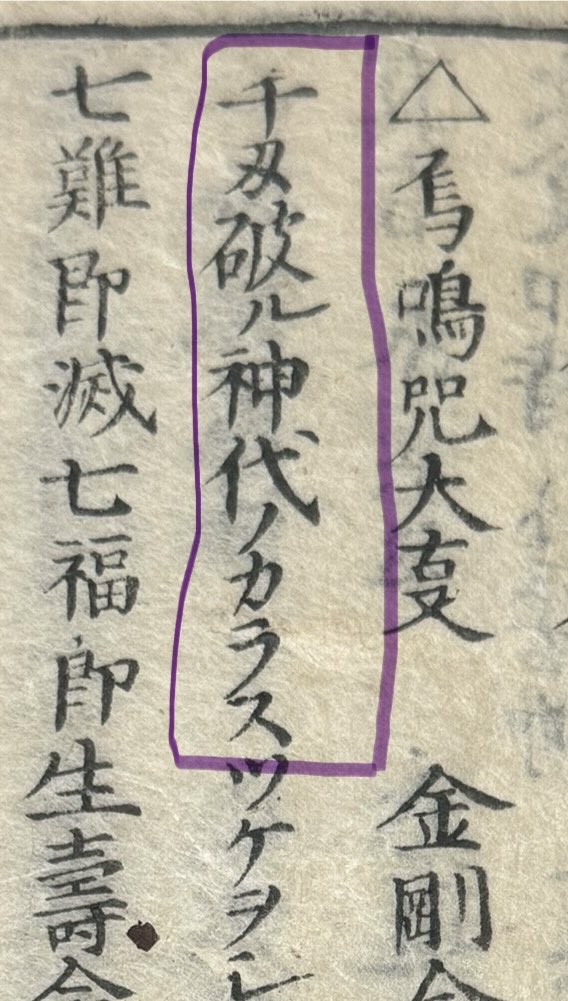 △烏鳴咒大事 金剛合
千刄破ル神代ノカラスツケヲシ
七難即滅七福即生壽命